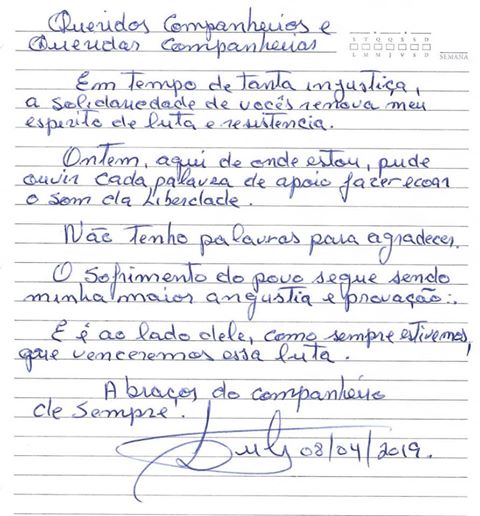 Queridos Companheiros e
Queridas Companheiras
S T Q Q S S D
L M M J V S D
SEMANA
Em tempo de tanta injustiça,
a solidariedade de vocês renova meu
espirito de luta e resistencia.
Ontem, aqui de onde estou, pude
ouvir cada palavra de apoio fazer ecoar
o som da Liberdade.
Não tenho palavras para agradecer.
O sofrimento do povo segue sendo
minha maior angustia e provação.
E é ao lado dele, como sempre estivemos,
que venceremos essa luta.
Abraços do companheiro
de sempre.
Lula 08/04/2019.